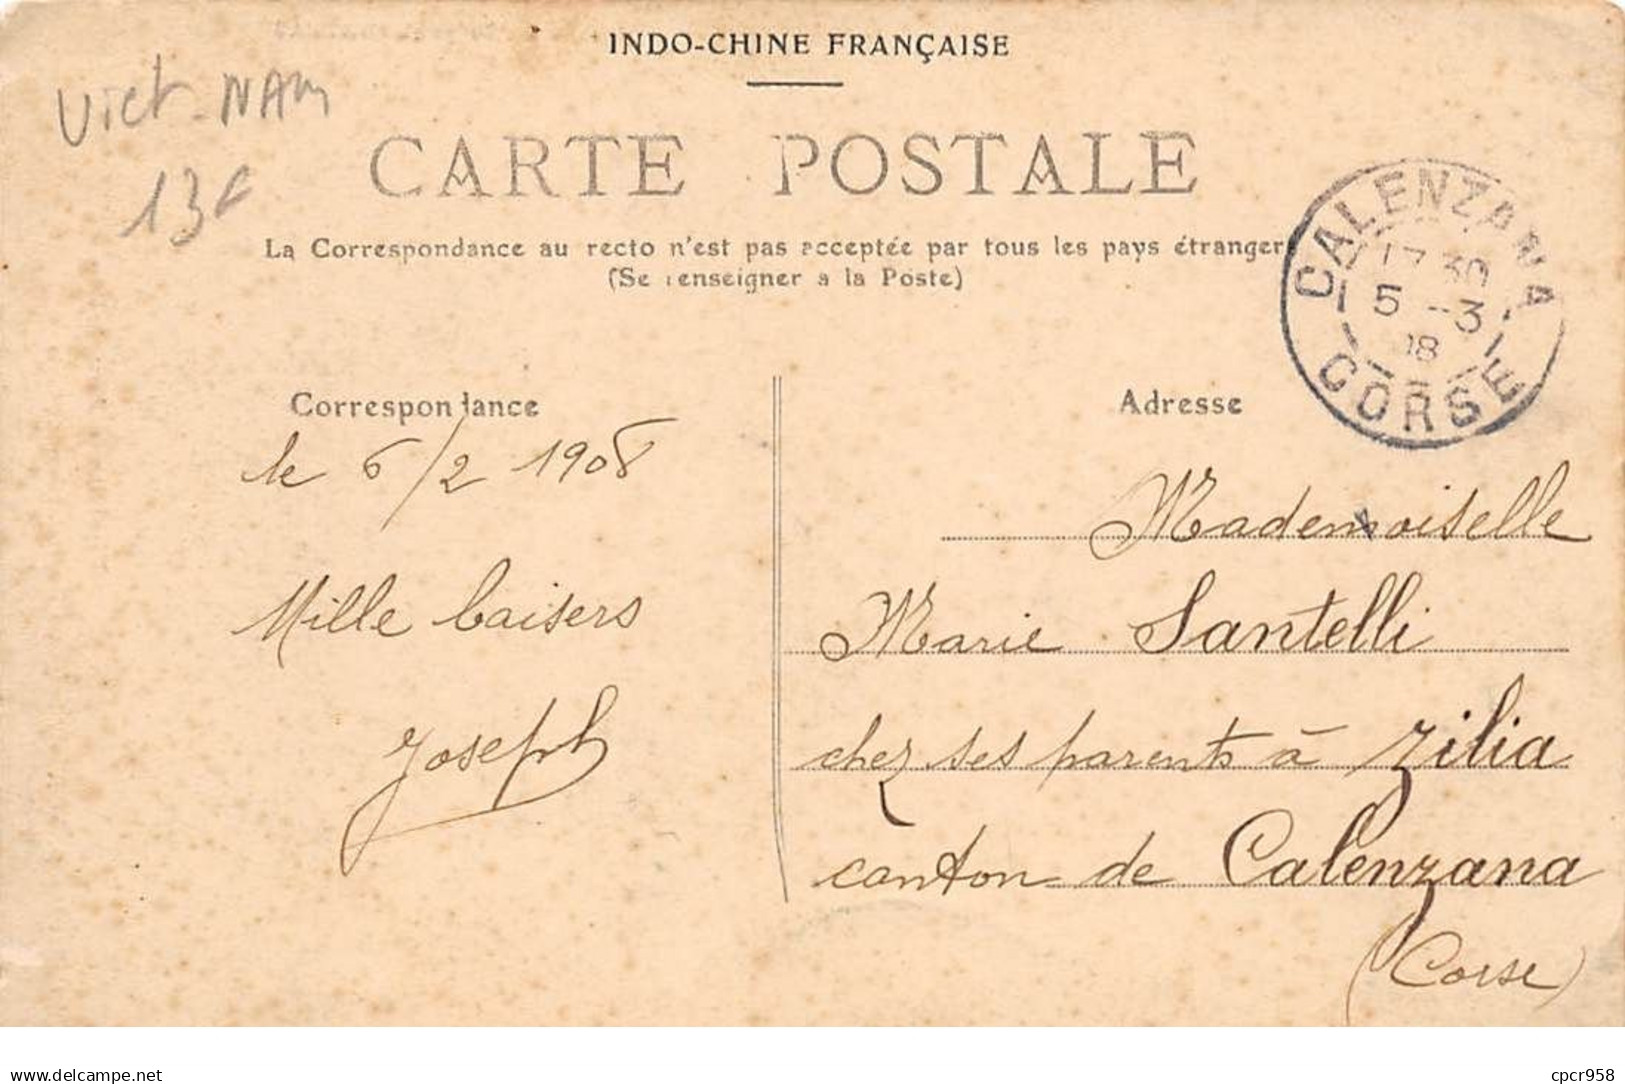 INDO-CHINE FRANÇAISE
Viet-NAM
13€
CARTE POSTALE
La Correspondance au recto n'est pas acceptée par tous les pays étrangers
(Se renseigner a la Poste)
CALENZANA
17 30
5 -3
08
CORSE
Correspondance
le 6/2 1908
Mille baisers
Joseph
Adresse
Mademoiselle
Marie Santelli
chez ses parents à Zilia
canton de Calenzana
(Corse)
www.delcampe.net
cpcr958